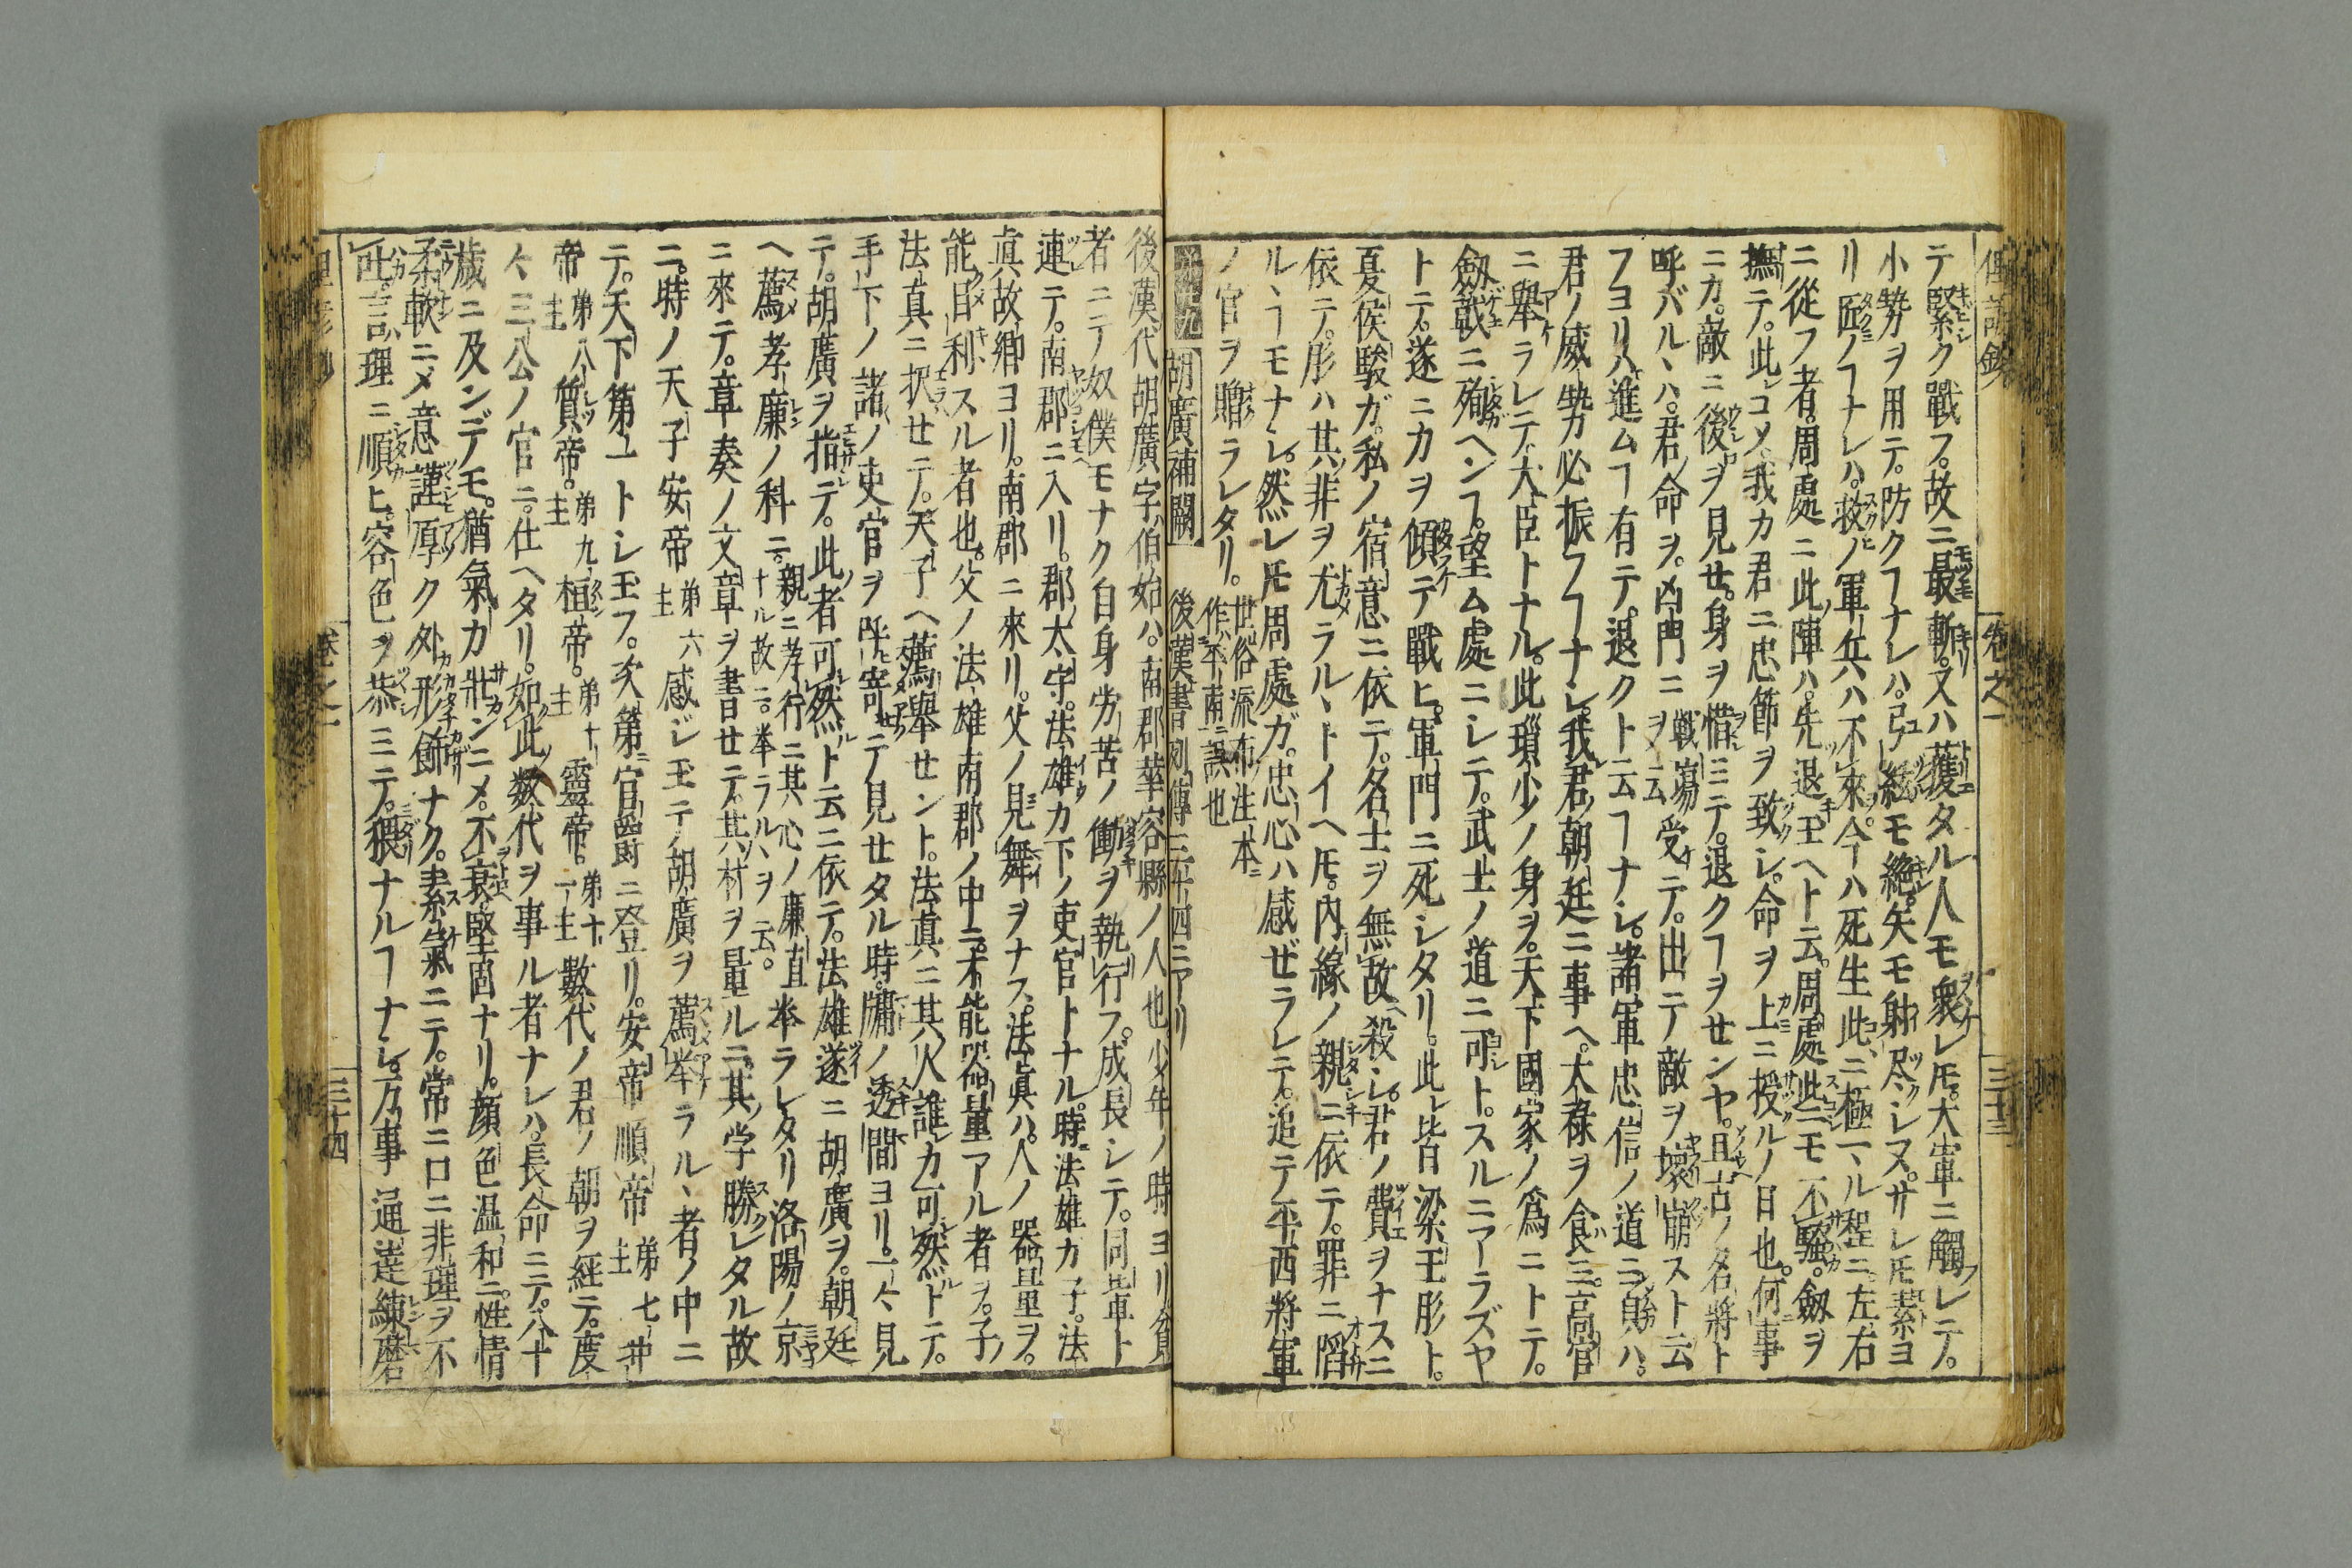 テ緊ク戰フ。故ニ最斬。又ハ獲タル人モ衆レ𪜈。大軍ニ觸レテ。
小勢ヲ用テ。防クヿナレハ。弓絃モ絶。矢モ射尽シヌ。サレ𪜈素ヨ
リ匠ノヿナレハ。救ノ軍兵ハ不來。今ハ死生此ニ極マル程ニ。左右
ニ從フ者。周處ニ此陣ハ。先退玉ヘト云。周處此ニモ不騷。劔ヲ
撫テ。此レコソ。我カ君ニ忠節ヲ致シ。命ヲ上ニ授ルノ日也。何事
ニカ。敵ニ後ヲ見せ。身ヲ惜ミテ。退クヿヲせンヤ。且古ノ名將ト
呼バルヽハ。君命ヲ。凶門ニ戰場ヲ云受テ。出テ敵ヲ壞崩スト云
フヨリハ進ムヿ有テ。退クト云ヿナシ。諸軍忠信ノ道ニ負ハ。
君ノ威勢力必振フヿナシ。我君ノ朝廷ニ事ヘ。大禄ヲ食ミ。高官
ニ舉ラレテ。大臣トナル。此瑣少ノ身ヲ。天下國家ノ爲ニトテ。
劔戟ニ殉ヘンフ。望ム處ニシテ。武士ノ道ニ可ト。スルニアラズヤ
トテ。遂ニカヲ傾テ戰ヒ。軍門ニ死シタリ。此レ皆梁王肜ト。
夏侯駿ガ。私ノ宿意ニ依テ。名士ヲ無故殺シ。君ノ費ヲナスニ
依テ。肜ハ其非ヲ尤ラルヽトイヘ𪜈。内縁ノ親ニ依テ。罪ニ陷
ルヽヿモナシ。然レ𪜈周處ガ。忠心ハ感ぜラレテ。追テ平西將軍
ノ官ヲ贈ラレタリ。世俗流布ノ注本ニ作平南ニ誤也
胡廣補闕 後漢書列傳三十四ニアリ
後漢代胡廣字伯始ハ。南郡華容縣ノ人也少年ノ時ヨリ貧
者ニテ奴僕モナク自身労苦ノ働ヲ執行フ。成長シテ。同輩ト
連テ。南郡ニ入リ。郡太守。法雄カ下ノ吏官トナル。時法雄カ子。法
眞故鄉ヨリ。南郡ニ來リ。父ノ見舞ヲナス。法眞ハ。人ノ器量ヲ。
能目利スル者也。父ノ法雄南郡ノ中ニ。才能器量アル者ヲ。子ノ
法眞ニ択せテ。天子ヘ薦舉せント。法眞ニ其人誰カ可然トテ。
手下ノ諸ノ吏官ヲ呼寄せテ見せタル時。牗ノ透間ヨリ。一々見
テ。胡廣ヲ指テ。此者可然ト云ニ依テ。法雄遂ニ胡廣ヲ。朝廷
ヘ薦孝廉ノ科ニ。親ニ孝行ニ其心ノ廉直ナル故ニ。挙ラルヽヲ云。挙ラレタリ洛陽ノ京
ニ來テ。章奏ノ文章ヲ書せテ。其材ヲ量ルニ。其学勝レタル故
ニ。時ノ天子安帝第六主感ジ玉テ胡廣ヲ薦挙ラルヽ者ノ中ニ
テ。天下第一トシ玉フ。次第ニ官爵ニ登リ。安帝順帝第七主
帝第八主質帝。第九主桓帝。第十主靈帝。第十一主數代ノ君ノ朝ヲ經テ。度
々三公ノ官ニ。仕ヘタリ。如此数代ヲ事ル者ナレハ。長命ニテ。八十
歳ニ及ンデモ。猶氣力壯ンニメ。不衰堅固ナリ。顔色温和ニ。性情
柔軟ニメ意謹厚ク外形餙ナク。素氣ニテ。常ニ口ニ非理ヲ不
吐。言理ニ順ヒ。容色ヲ恭ミテ。猥ナルヿナシ。万事通達練磨
卷之一
三十三
三十四